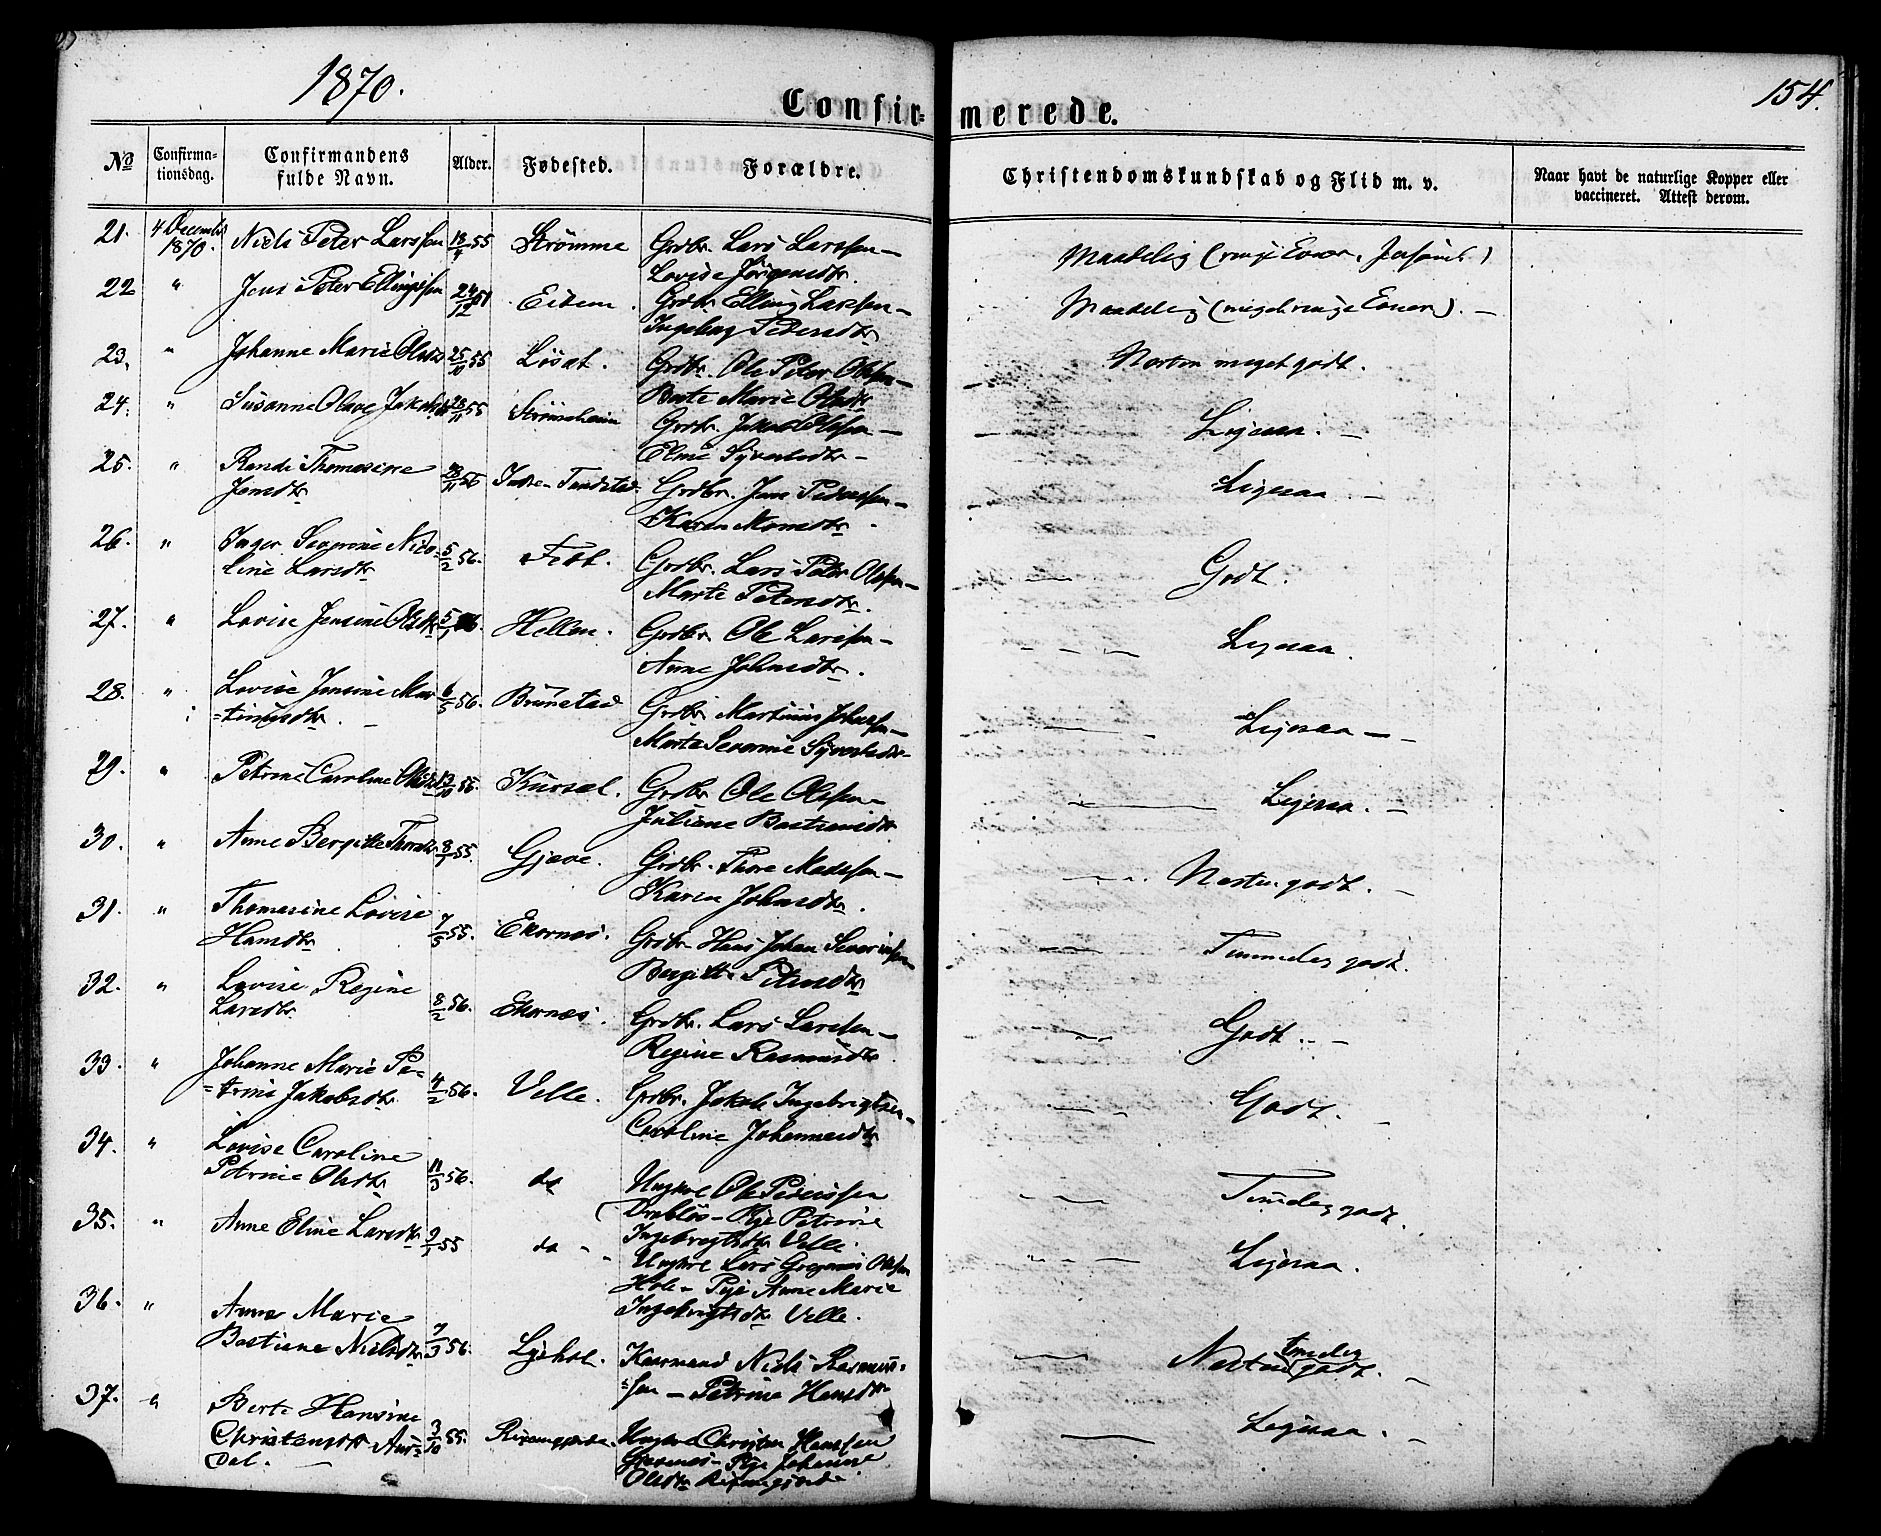 1870.
154.
Confir- merede.
No
Confirma-
tionsdag.
Confirmandens
fulde Navn.
Alder.
Fødested.
Forældre.
Christendomskundskab og Flid m. v.
Naar havt de naturlige Kopper eller
vaccineret. Attest derom.
21. 4 December 1870. Niels Peter Larssen 18/4 55 Strømme Grdbr. Lars Larssen —
Lovise Jörgensdtr. Maadelig (ringe Evner,
22 " Jens Peter Ellingssen 24/12 Eidem. Grdbr. Elling Larssen —
Ingeborg Pedersdtr Maadelig (meget ringe Evner). —
23. " Johanne Marie Olsdtr 25/10 55 Grdbr. Ole Peter Olssen —
Berte Marie Olsdtr — Næsten meget godt.
24. " Susanne Olave Jakobsdtr 55 Strømsheim Grdbr. Jakob Olssen —
Eline Syvertsdtr — Ligesaa. —
25. " Randi Thomasine
Jensdtr 55 Grdbr. Jens Pederssen —
Karen Monsdtr. Ligesaa. —
26. " Inger Severine Nico-
line Larsdtr 5/2 56. Fet. Grdbr. Lars Peter Olssen —
Marte Petersdtr. — Godt.
27. " Lovise Jensine Olsdtr Hellen. Grdbr. Ole Larssen —
Anne Johnsdtr. Ligesaa.
28. " Lovise Jensine Mar-
=tinusdtr. — 6/5 56. Brunstad Grdbr. Martinus Johnssen —
Marte Severine Syvertsdtr — Ligesaa — —
29. " Petrine Caroline Olsdtr 13/10 55. Kursæt. Grdbr. Ole Olssen —
Juliane Bastiansdtr — Ligesaa. —
30. " Anne Bergitte Thoresdtr 55. Gjære. Grdbr. Thore Madssen —
Karen Johnsdtr. Næsten godt. —
31. " Thomasine Lovise
Hansdtr. 7/5 55. Ekornæs. Grdbr. Hans Johan Severinssen —
Bergitte Petersdtr — Temmelig godt.
32. " Lovise Regine
Larsdtr. 8/2 56. Ekornæs. Grdbr. Lars Larssen —
Regine Rasmusdtr — Godt. —
33. " Johanne Marie Pe-
=trine Jakobsdtr 4/2 56. Velle. Grdbr. Jakob Ingebrigtsen —
Caroline Johannesdtr — Godt. —
34. " Lovise Caroline
Petrine Olsdtr 11/3 56. do Ungkrl Ole Pederssen
— Pige Petrine
Ingebrigtsdtr Velle. — godt.
35. " Anne Eline Larsdtr 55 do — Ungkrl Lars Olssen
Hole — Pige Anne Marie
Ingebrigtsdtr Velle. Ligesaa.
36. " Anna Marie
Bastiane Nielsdtr 7/3 56. Kaarmand Niels Rasmus-
=sen — Petrine Hansdtr — Næsten godt. —
37. " Berte Hansine
Christensdtr Aurs=
dal. — 3/10 55. Ungkrl Christen Hanssen
— Pige Johanne
Olsdtr — Ligesaa. —